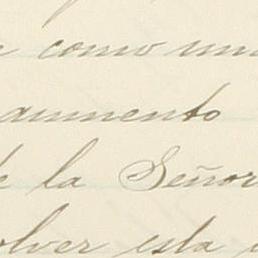 como un
aumento
de la Señor
olver esta